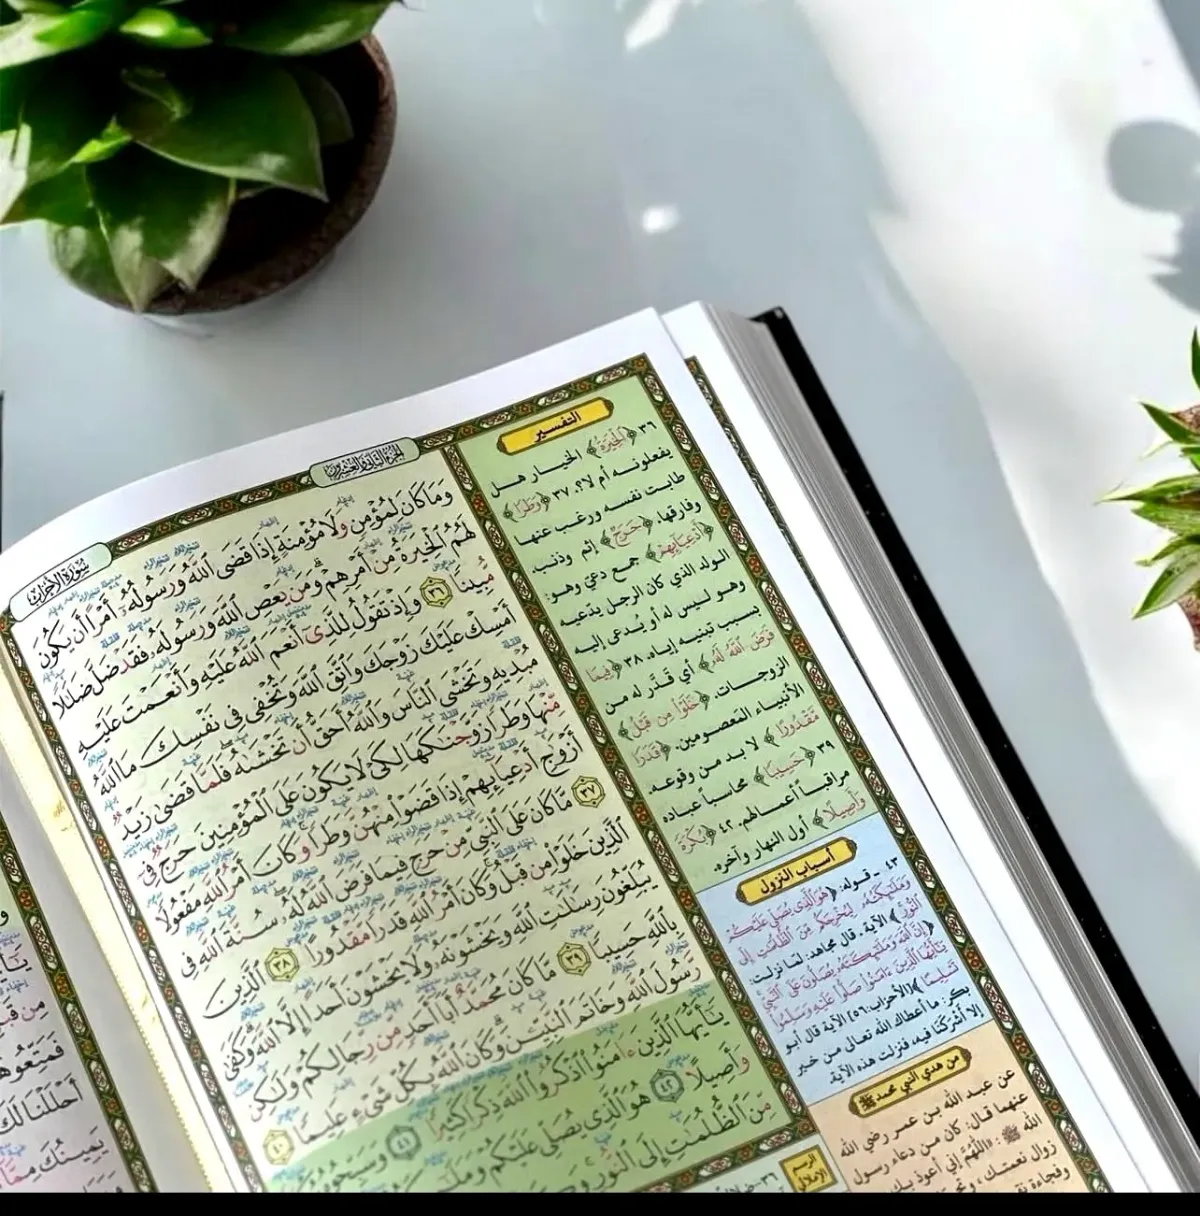 سورة الأحزاب
الجزء الثاني والعشرون
وَمَا كَانَ لِمُؤْمِنٍ وَلَا مُؤْمِنَةٍ إِذَا قَضَى ٱللَّهُ وَرَسُولُهُۥٓ أَمْرًا أَن يَكُونَ
لَهُمُ ٱلْخِيَرَةُ مِنْ أَمْرِهِمْ ۗ وَمَن يَعْصِ ٱللَّهَ وَرَسُولَهُۥ فَقَدْ ضَلَّ ضَلَٰلًا
مُّبِينًا ٣٦ وَإِذْ تَقُولُ لِلَّذِىٓ أَنْعَمَ ٱللَّهُ عَلَيْهِ وَأَنْعَمْتَ عَلَيْهِ
أَمْسِكْ عَلَيْكَ زَوْجَكَ وَٱتَّقِ ٱللَّهَ وَتُخْفِى فِى نَفْسِكَ مَا ٱللَّهُ
مُبْدِيهِ وَتَخْشَى ٱلنَّاسَ وَٱللَّهُ أَحَقُّ أَن تَخْشَىٰهُ ۖ فَلَمَّا قَضَىٰ زَيْدٌ
مِّنْهَا وَطَرًا زَوَّجْنَٰكَهَا لِكَىْ لَا يَكُونَ عَلَى ٱلْمُؤْمِنِينَ حَرَجٌ فِىٓ
أَزْوَٰجِ أَدْعِيَآئِهِمْ إِذَا قَضَوْا۟ مِنْهُنَّ وَطَرًا ۚ وَكَانَ أَمْرُ ٱللَّهِ مَفْعُولًا
٣٧ مَّا كَانَ عَلَى ٱلنَّبِىِّ مِنْ حَرَجٍ فِيمَا فَرَضَ ٱللَّهُ لَهُۥ ۖ سُنَّةَ ٱللَّهِ فِى
ٱلَّذِينَ خَلَوْا۟ مِن قَبْلُ ۚ وَكَانَ أَمْرُ ٱللَّهِ قَدَرًا مَّقْدُورًا ٣٨ ٱلَّذِينَ
يُبَلِّغُونَ رِسَٰلَٰتِ ٱللَّهِ وَيَخْشَوْنَهُۥ وَلَا يَخْشَوْنَ أَحَدًا إِلَّا ٱللَّهَ ۗ وَكَفَىٰ
بِٱللَّهِ حَسِيبًا ٣٩ مَّا كَانَ مُحَمَّدٌ أَبَآ أَحَدٍ مِّن رِّجَالِكُمْ وَلَٰكِن
رَّسُولَ ٱللَّهِ وَخَاتَمَ ٱلنَّبِيِّـۧنَ ۗ وَكَانَ ٱللَّهُ بِكُلِّ شَىْءٍ عَلِيمًا ٤٠
يَٰٓأَيُّهَا ٱلَّذِينَ ءَامَنُوا۟ ٱذْكُرُوا۟ ٱللَّهَ ذِكْرًا كَثِيرًا ٤١ وَسَبِّحُوهُ
وَأَصِيلًا ٤٢ هُوَ ٱلَّذِى يُصَلِّى عَلَيْكُمْ
مِّنَ ٱلظُّلُمَٰتِ إِلَى ٱلنُّورِ
التفسير
٣٦ ﴿الْخِيَرَةُ﴾ الخيار هل
يفعلونه أم لا؟. ٣٧ ﴿وَطَرًا﴾
طابت نفسه ورغب عنها
وفارقها. ﴿حَرَجٌ﴾ إثم وذنب.
﴿أَدْعِيَآئِهِمْ﴾ جمع دعيّ وهو:
الولد الذي كان الرجل يدّعيه
وهو ليس له أو يُدعى إليه
بسبب تبنيه إياه. ٣٨ ﴿فِيمَا
فَرَضَ ٱللَّهُ لَهُ﴾ أي قدّر له من
الزوجات. ﴿خَلَوْا مِن قَبْلُ﴾
الأنبياء المعصومين. ﴿قَدَرًا
مَّقْدُورًا﴾ لا بد من وقوعه.
٣٩ ﴿حَسِيبًا﴾ محاسباً عباده
مراقباً أعمالهم. ٤٢ ﴿بُكْرَةً
وَأَصِيلًا﴾ أول النهار وآخره.
أسباب النزول
٤٣ - قوله: ﴿هُوَ ٱلَّذِى يُصَلِّى عَلَيْكُمْ
وَمَلَٰٓئِكَتُهُۥ لِيُخْرِجَكُم مِّنَ ٱلظُّلُمَٰتِ إِلَى
ٱلنُّورِ﴾ الآية. قال مجاهد: لمّا نزلت:
﴿إِنَّ ٱللَّهَ وَمَلَٰٓئِكَتَهُۥ يُصَلُّونَ عَلَى ٱلنَّبِىِّ
يَٰٓأَيُّهَا ٱلَّذِينَ ءَامَنُوا۟ صَلُّوا۟ عَلَيْهِ وَسَلِّمُوا۟
تَسْلِيمًا﴾ [الأحزاب: ٥٦] الآية قال أبو
بكر: ما أعطاك الله تعالى من خير
إلا أشركتنا فيه، فنزلت هذه الآية.
من هدي النبي محمد ﷺ
عن عبد الله بن عمر رضي الله
عنهما قال: كان من دعاء رسول
الله ﷺ: «اللَّهُمَّ إني أعوذ بك
زوال نعمتك،
وفجاءة
الرسم
الإملائي
مِن قَبْ
فَمَتِّعُوهُ
أَحْلَلْنَا لَكَ
يَمِينُكَ مِمَّا